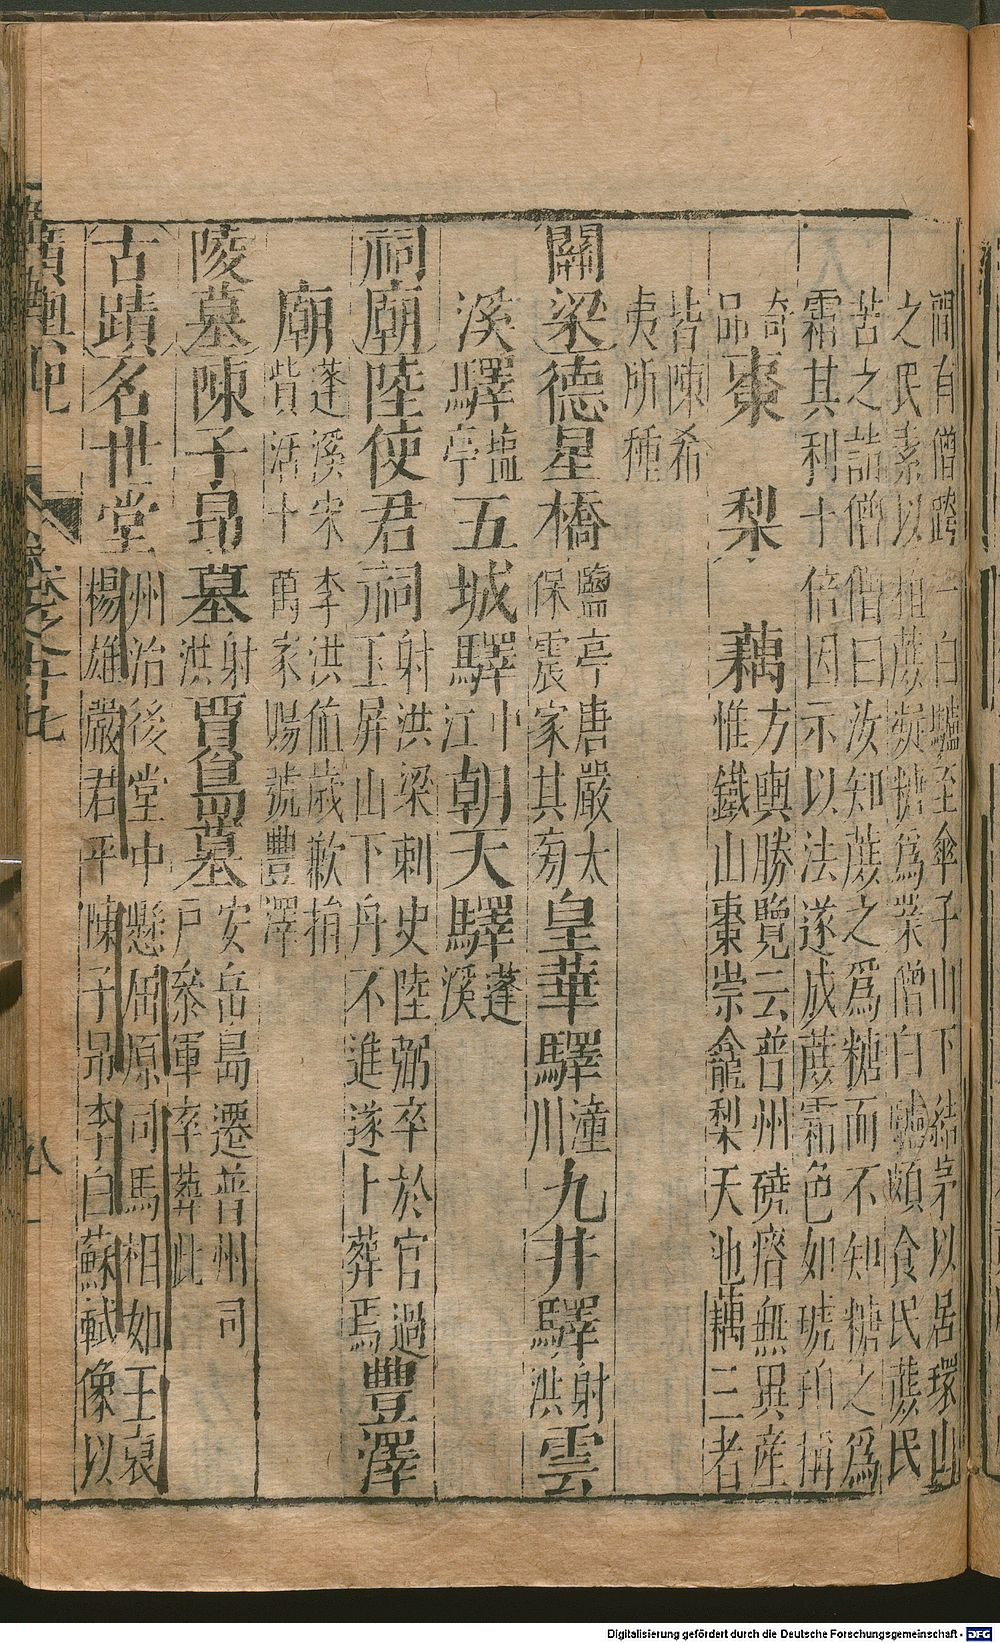 間有僧跨一白驢至傘子山下結茅以居環山
之民素以植蔗凝糖爲業僧白驢頗食民蔗民
苦之詰僧僧曰汝知蔗之爲糖而不知糖之爲
霜其利十倍因示以法遂成蔗霜色如琥珀稱
奇
品棗 梨 藕方輿勝覽云普州磽瘠無異産
惟鐵山棗崇龕梨天池藕三者
皆陳希
夷所種
關梁德星橋鹽亭唐嚴太
保震家其旁皇華驛潼
川九井驛射
洪雲
溪驛塩
亭五城驛中
江朝天驛蓬
溪
祠廟陸使君祠射洪梁刺史陸弼卒於官過
玉屏山下舟不進遂卜葬焉豐澤
廟蓬溪宋李洪值歲歉捐
貲活十萬家賜號豐澤
陵墓陳子昂墓射
洪賈島墓安岳島遷普州司
戸叅軍卒葬此
古蹟名世堂州治後堂中懸屈原司馬相如王襃
楊雄嚴君平陳子昻李白蘇軾像以
廣輿記
卷之十七
八
Digitalisierung gefördert durch die Deutsche Forschungsgemeinschaft - DFG